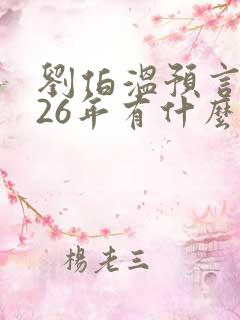 劉伯溫預言
26年有什麼
楊老三